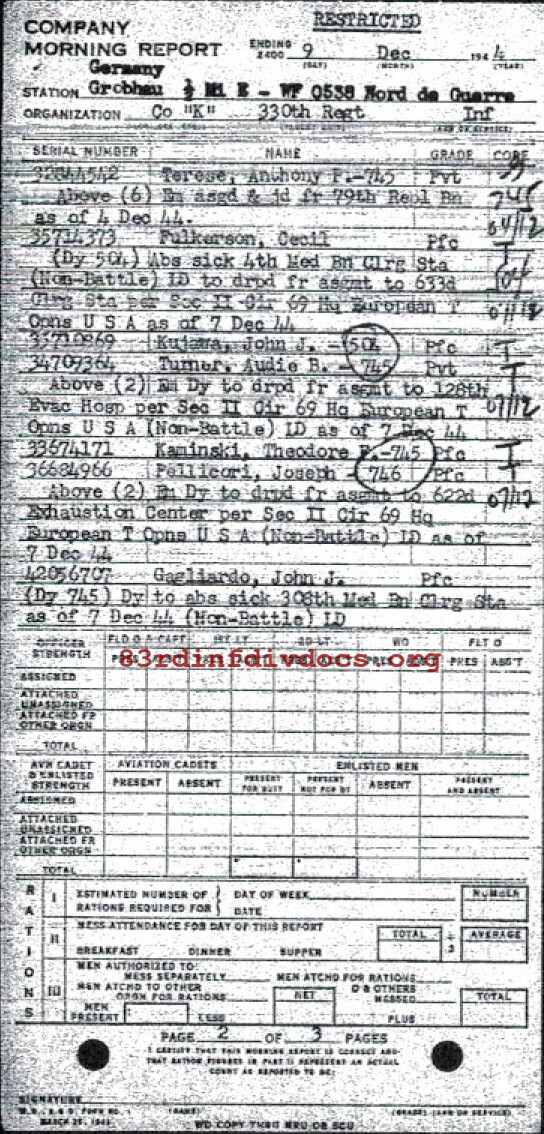 RESTRICTED
COMPANY
MORNING REPORT ENDING 2400 9 Dec 1944
(DAY) (MONTH) (YEAR)
Germany
STATION Grobhau ½ Mi E - WF 0538 Nord de Guerre
ORGANIZATION Co "K" 330th Regt Inf
(ARM OR SERVICE)
SERIAL NUMBER NAME GRADE CODE
32844542 Terese, Anthony P.-745 Pvt
Above (6) Em asgd & jd fr 79th Repl Bn 745
as of 4 Dec 44. 04/12
35714373 Fulkerson, Cecil Pfc T
(Dy 504) Abs sick 4th Med Bn Clrg Sta 504
(Non-Battle) LD to drpd fr asgmt to 633d
Clrg Sta per Sec II Cir 69 Hq European T 07/12
Opns U S A as of 7 Dec 44
35710869 Kujawa, John J. - 504 Pfc T
34709364 Turner, Audie B. - 745 Pvt T
Above (2) Em Dy to drpd fr asgmt to 128th
Evac Hosp per Sec II Cir 69 Hq European T 07/12
Opns U S A (Non-Battle) LD as of 7 Dec 44
33674171 Kaminski, Theodore P.-745 Pfc T
36684966 Pellicori, Joseph - 746 Pfc T
Above (2) Em Dy to drpd fr asgmt to 622d 07/12
Exhaustion Center per Sec II Cir 69 Hq
European T Opns U S A (Non-Battle) LD as of
7 Dec 44
42056707 Gagliardo, John J. Pfc
(Dy 745) Dy to abs sick 308th Med Bn Clrg Sta
as of 7 Dec 44 (Non-Battle) LD
OFFICER STRENGTH FLD O & CAPT 1ST LT 2D LT WO FLT O
83rdinfdivdocs.org
PRES ABS'T
ASSIGNED
ATTACHED UNASSIGNED
ATTACHED FR OTHER ORGN
TOTAL
AVN CADET & ENLISTED STRENGTH AVIATION CADETS ENLISTED MEN
PRESENT ABSENT PRESENT FOR DUTY PRESENT NOT FOR DY ABSENT PRESENT AND ABSENT
ASSIGNED
ATTACHED UNASSIGNED
ATTACHED FR OTHER ORGN
TOTAL
RATIONS
I ESTIMATED NUMBER OF RATIONS REQUIRED FOR DAY OF WEEK DATE NUMBER
II MESS ATTENDANCE FOR DAY OF THIS REPORT TOTAL ÷ 3 AVERAGE
BREAKFAST DINNER SUPPER
III MEN AUTHORIZED TO MESS SEPARATELY MEN ATCHD FOR RATIONS
MEN ATCHD TO OTHER ORGN FOR RATIONS NET O & OTHERS MESSED TOTAL
MEN PRESENT LESS PLUS
PAGE 2 OF 3 PAGES
I CERTIFY THAT THIS MORNING REPORT IS CORRECT AND
THAT RATION FIGURES IN PART III REPRESENT AN ACTUAL
COUNT AS REPORTED TO ME:
SIGNATURE
W.D., A.G.O. FORM NO. 1 (NAME) (GRADE) (ARM OR SERVICE)
MARCH 25, 1943
WD COPY THRU MRU OR SCU